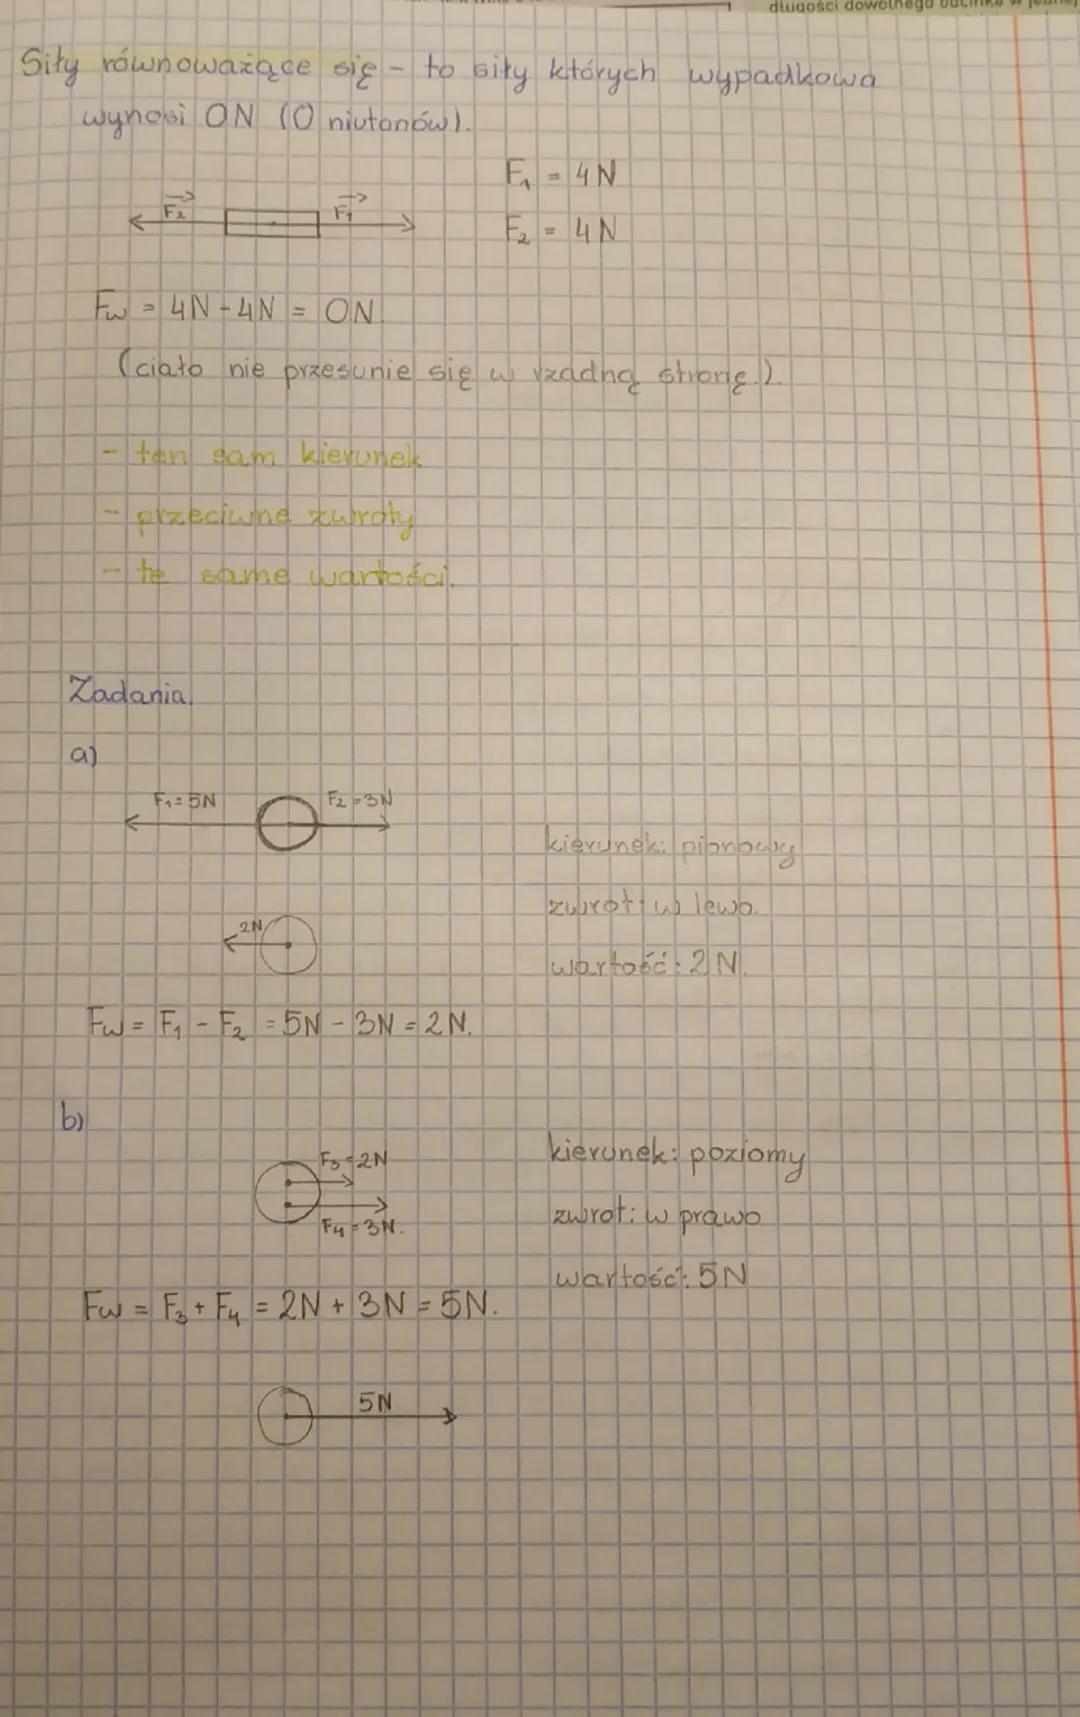 długości dowolnego odcinka w jednej
Siły równoważące się - to siły których wypadkowa
wynosi 0N (0 niutonów).
F₁ = 4N
F₂ = 4N
F₂ F₁
Fw = 4N - 4N = 0N
(ciało nie przesunie się w rzadną stronę).
- ten sam kierunek
- przeciwne zwroty
- te same wartości.
Zadania.
a)
F₁ = 5N F₂ = 3N
kierunek: pionowy
zwrot: w lewo.
2N
wartość: 2N.
Fw = F₁ - F₂ = 5N - 3N = 2N.
b)
F₃ = 2N
kierunek: poziomy
zwrot: w prawo
F₄ = 3N.
wartość: 5N
Fw = F₃ + F₄ = 2N + 3N = 5N.
5N